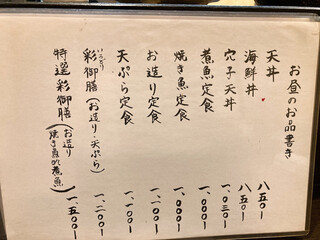 お昼のお品書き
天丼 八五〇ー
海鮮丼 八五〇ー
穴子天丼 一、〇三〇ー
煮魚定食 一、〇〇〇ー
焼き魚定食 一、〇〇〇ー
お造り定食 一、二〇〇ー
天ぷら定食 一、一〇〇ー
彩御膳(お造り・天ぷら) 一、二〇〇ー
特選彩御膳(お造り 焼き魚or煮魚) 一、五〇〇ー